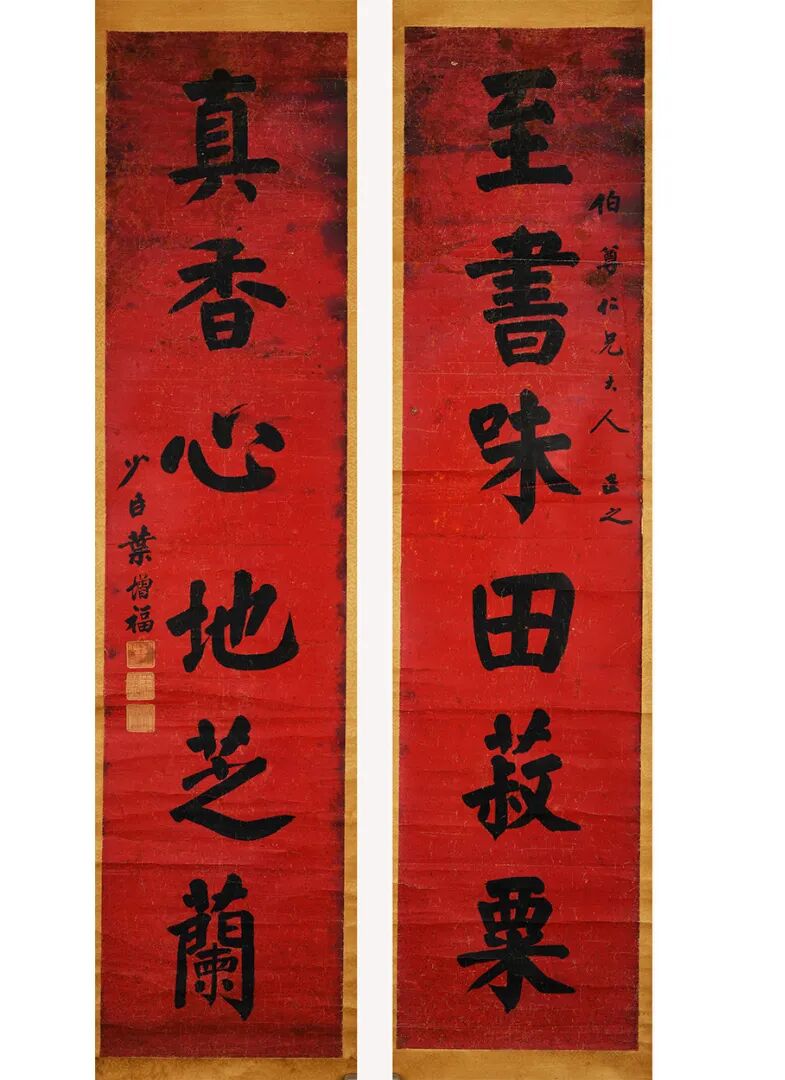 伯尊仁兄大人正之
至書味田菽粟
真香心地芝蘭
少白葉增福